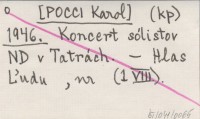 [POCCI Karol] (kp)
1946. Koncert sólistov
ND v Tatrách. – Hlas
Ľudu, nr (1 VIII).